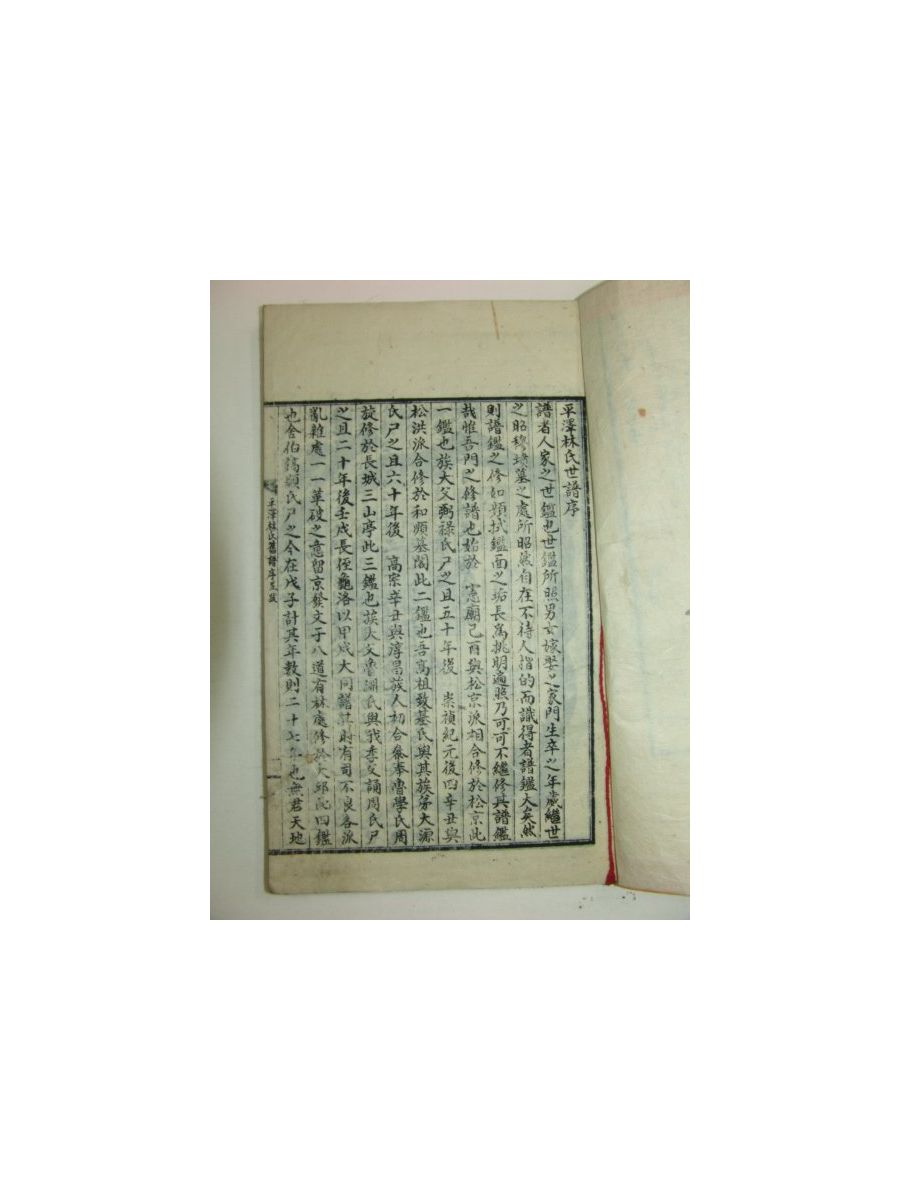 平澤林氏世譜序
譜者人家之世鑑也世鑑所照男女嫁娶之家門生卒之年歲繼世
之昭穆墳墓之處所昭處自在不待人指的而識得者譜鑑大矣然
則譜鑑之修如類拭鑑面之垢長爲挑明遍照乃可可不繼修其譜鑑
哉惟吾門之修譜也始於 憲廟己酉與松京派相合修於松京此
一鑑也族大父弼祿氏尸之且五十年後 崇禎紀元後四辛丑與
松洪派合修於和順墓閣此二鑑也吾高祖致基氏與其族弟大源
氏尸之且六十年後 高宗辛丑與淳昌族人初合參奉魯學氏周
旋修於長城三山亭此三鑑也族大父魯淵氏與我季父誦周氏尸
之且二十年後壬戌長侄龜洛以甲戌大同譜時有司不良各派
亂雜處一一革破之意留京發文于八道有林處修於大邱此四鑑
也舍伯鎬顯氏尸之今在戊子計其年數則二十七年也無君天地
平澤林氏舊譜序